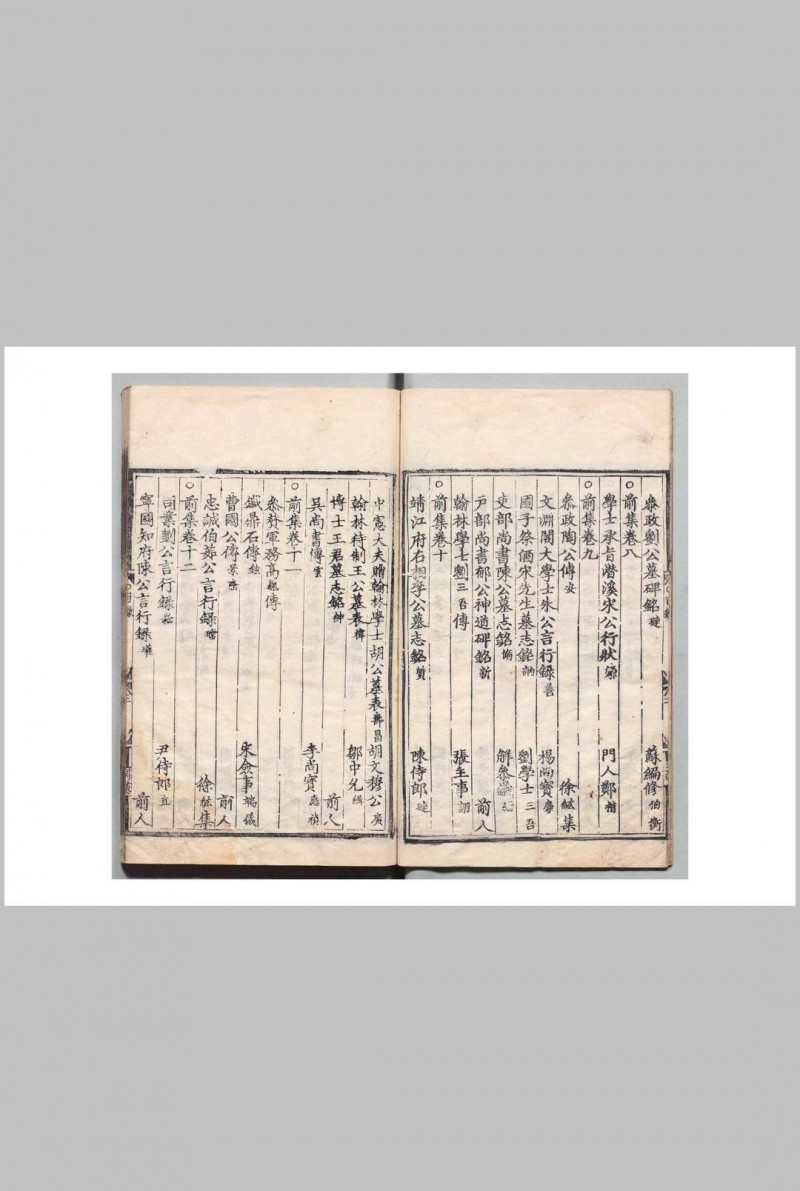 參政劉公墓碑銘 璉 蘇編修 伯衡
○前集卷八
學士承旨潛溪宋公行狀 濂 門人鄭 楷
○前集卷九
參政陶公傳 安 徐紘集
文淵閣大學士朱公言行錄 善 楊尚寶
國子祭酒宋先生墓志銘 訥 劉學士 三吾
吏部尚書陳公墓志銘 解參議
戶部尚書郁公神道碑銘 新 前人
翰林學士劉 三吾 傳 張主事
○前集卷十
靖江府右相李公墓志銘 質 陳侍郎 璉
中憲大夫贈翰林學士胡公墓表 壽昌 胡文穆公 廣
翰林待制王公墓表 褘 鄒中允 緝
博士王君墓志銘 紳 前人
吳尚書傳 雲 李尚寶 應禎
○前集卷十一
參贊軍務高 巍 傳
鐵鼎石傳 鉉 宋僉事 端儀
曹國公傳 景隆 前人
忠誠伯茹公言行錄 瑺 徐紘集
○前集卷十二
司業劉公言行錄 尹侍郎 直
寧國知府陳公言行錄 灌 前人